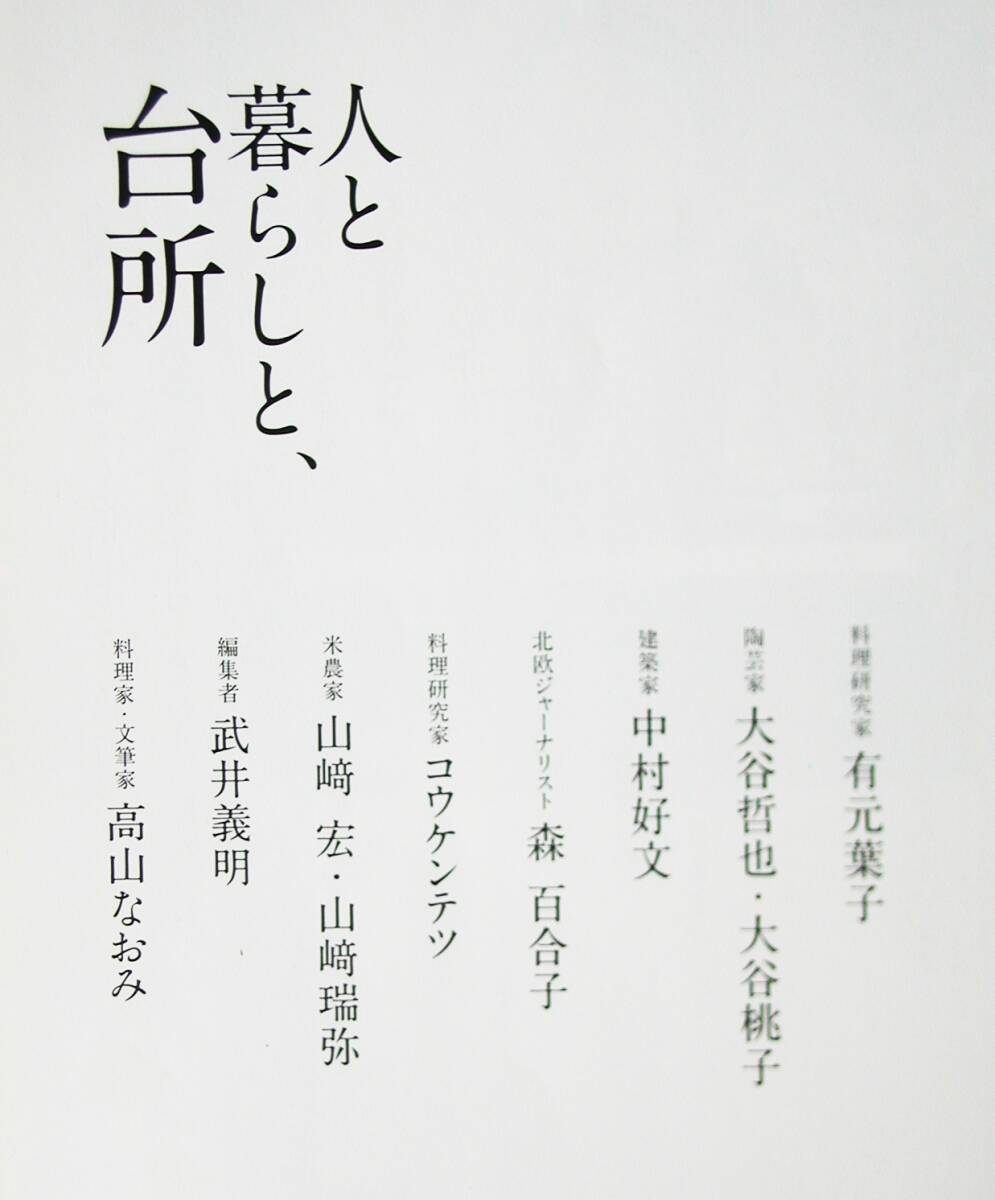 人と
暮らしと、
台所
料理研究家 有元葉子
陶芸家 大谷哲也・大谷桃子
建築家 中村好文
北欧ジャーナリスト 森 百合子
料理研究家 コウケンテツ
米農家 山﨑 宏・山﨑瑞弥
編集者 武井義明
料理家・文筆家 高山なおみ